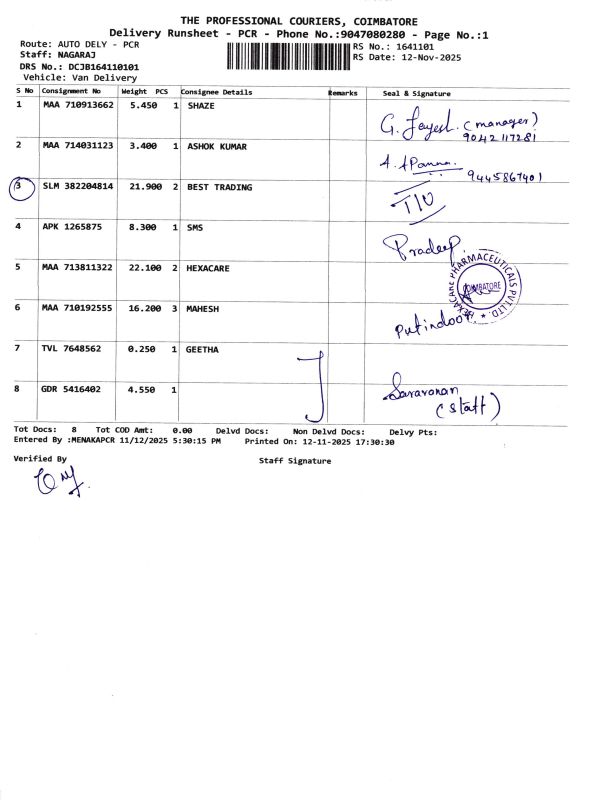 THE PROFESSIONAL COURIERS, COIMBATORE
Delivery Runsheet - PCR - Phone No.:9047080280 - Page No.:1
Route: AUTO DELY - PCR RS No.: 1641101
Staff: NAGARAJ RS Date: 12-Nov-2025
DRS No.: DCJB164110101
Vehicle: Van Delivery
S No Consignment No Weight PCS Consignee Details Remarks Seal & Signature
1 MAA 710913662 5.450 1 SHAZE
(manager)
9042117281
2 MAA 714031123 3.400 1 ASHOK KUMAR
9445867401
3 SLM 382204814 21.900 2 BEST TRADING
4 APK 1265875 8.300 1 SMS
Pradeep
5 MAA 713811322 22.100 2 HEXACARE
HEXACARE PHARMACEUTICALS PVT.LTD. ★
COIMBATORE
6 MAA 710192555 16.200 3 MAHESH
Putindoor
7 TVL 7648562 0.250 1 GEETHA
8 GDR 5416402 4.550 1
Saravanan
(staff)
Tot Docs: 8 Tot COD Amt: 0.00 Delvd Docs: Non Delvd Docs: Delvy Pts:
Entered By :MENAKAPCR 11/12/2025 5:30:15 PM Printed On: 12-11-2025 17:30:30
Verified By Staff Signature